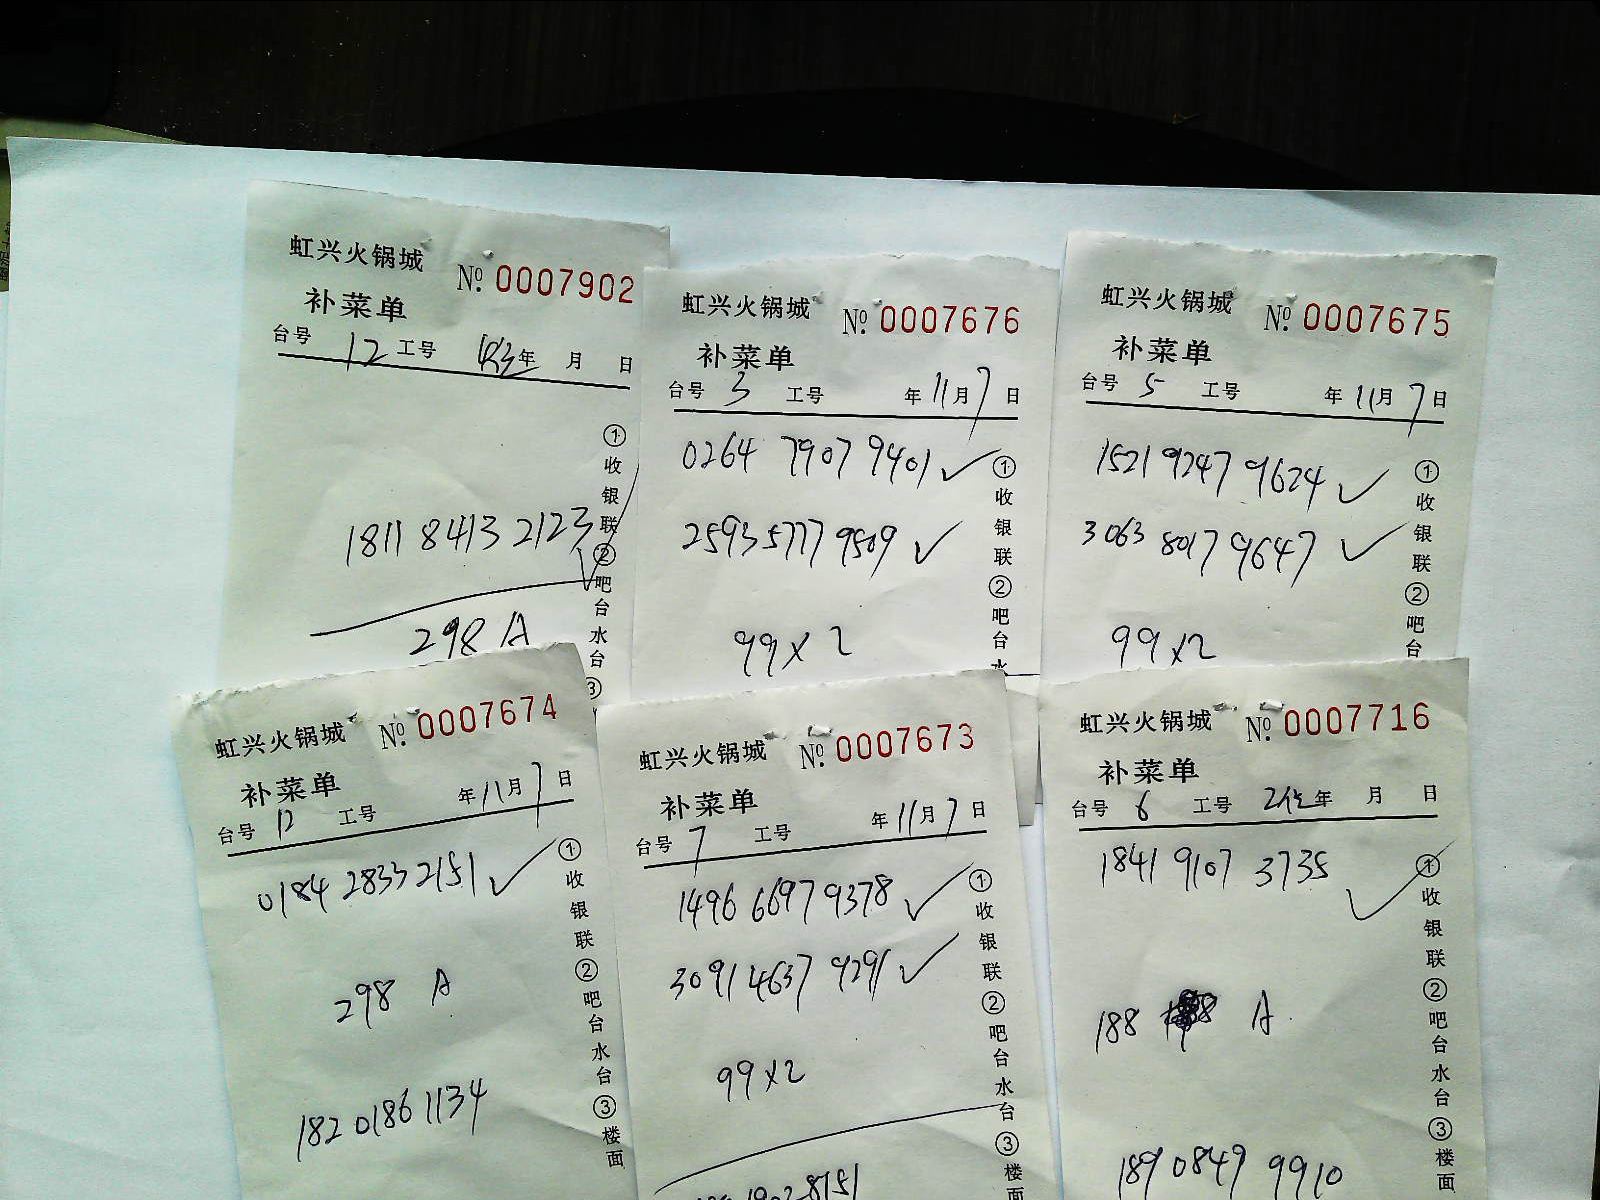 虹兴火锅城 № 0007902
补菜单
台号 12 工号 年 月 日
1811 8413 2123
298 A
①收银联②吧台水台③
虹兴火锅城 № 0007676
补菜单
台号 3 工号 年 11月 7日
0264 7907 9401
2593 5777 9509
99 x 2
①收银联②吧台水
虹兴火锅城 № 0007675
补菜单
台号 5 工号 年 11月 7日
1521 9247 9624
3063 8017 9647
99 x 2
①收银联②吧台
虹兴火锅城 № 0007674
补菜单
台号 12 工号 年 11月 7日
0184 2833 2151
298 A
182 0186 1134
①收银联②吧台水台③楼面
虹兴火锅城 № 0007673
补菜单
台号 7 工号 年 11月 7日
1496 6697 9378
3091 4637 9291
99 x 2
8151
①收银联②吧台水台③楼面
虹兴火锅城 № 0007716
补菜单
台号 6 工号 年 月 日
1841 9107 3735
188 A
189 0849 9910
①收银联②吧台水台③楼面